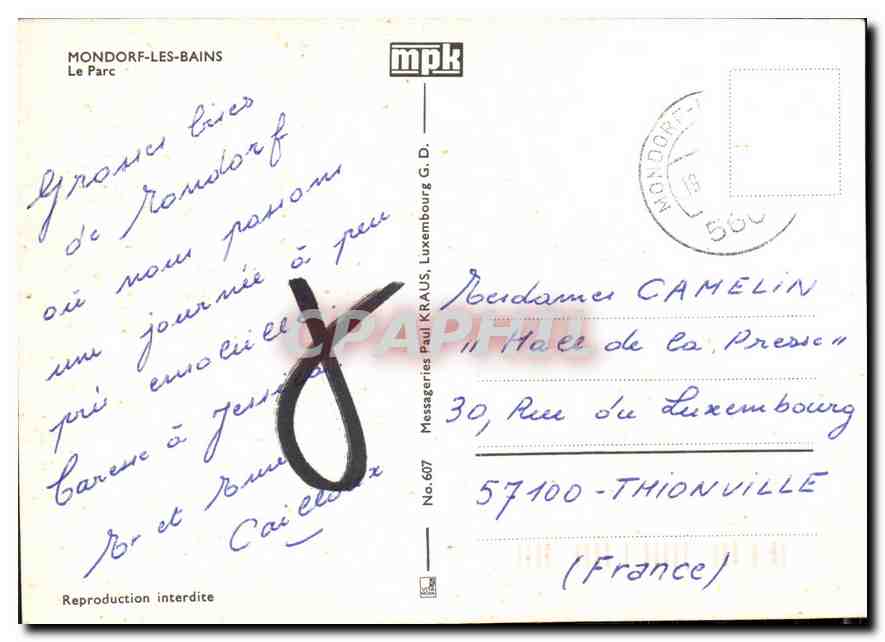 MONDORF-LES-BAINS
Le Parc
mpk
Grosses bises
de Mondorf
où nous passons
une journée à peu
près ensoleillée
Caresse à Jessica
Mr et Mme
Cailloux
Reproduction interdite
No. 607 Messageries Paul KRAUS, Luxembourg G. D.
MONDORF-
560
Mesdames CAMELIN
"Hall de la Presse"
30, Rue du Luxembourg
57100-THIONVILLE
(France)
CPAPHIL